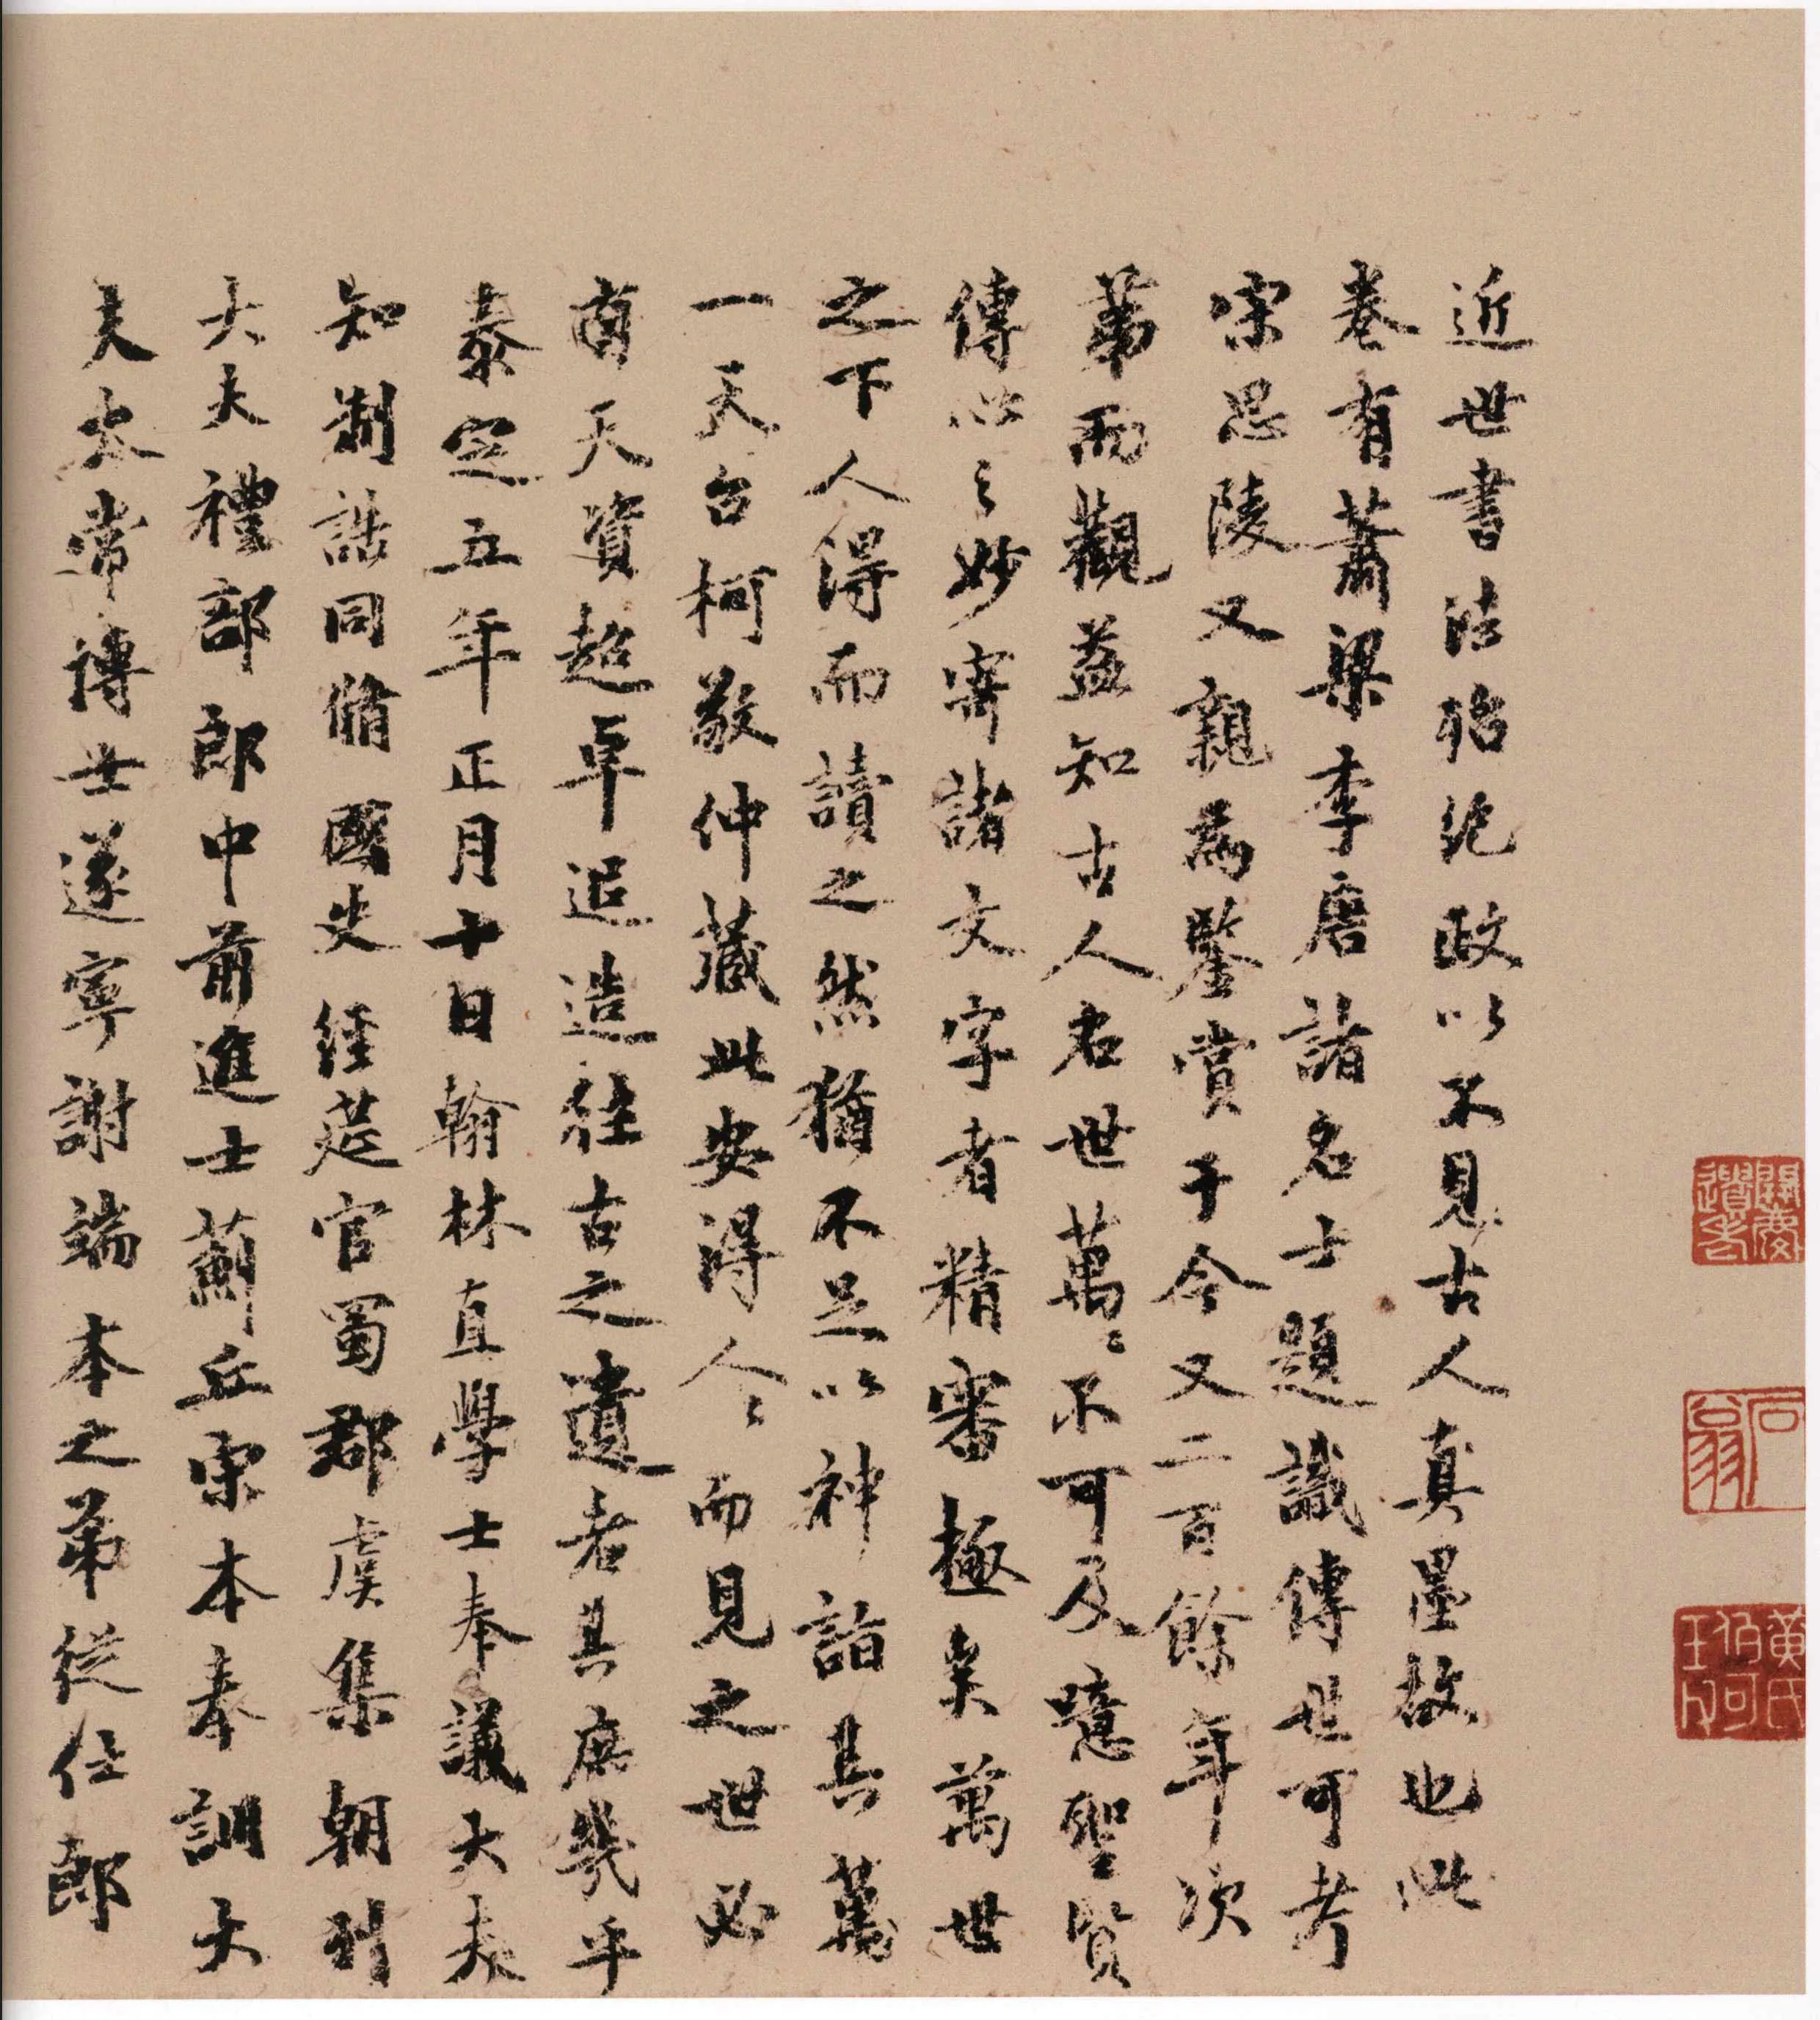 近世書法殆絕政以不見古人真墨故也此
卷有蕭梁李唐諸名士題識傳世可考
宋思陵又親為鑒賞于今又二百餘年次
第而觀益知古人名世萬々不可及噫聖賢
傳心之妙寄諸文字者精審極矣萬世
之下人得而讀之然猶不足以神詣其萬
一天台柯敬仲藏此安得人々而見之世必
有天資超卓追造往古之遺者其庶幾乎
泰定五年正月十日翰林直學士奉議大夫
知制誥同脩國史經筵官蜀郡虞集朝列
大夫禮部郎中前進士薊丘宋本奉訓大
夫太常博士遂寧謝端本之弟從仕郎
石翁
黃氏伯可